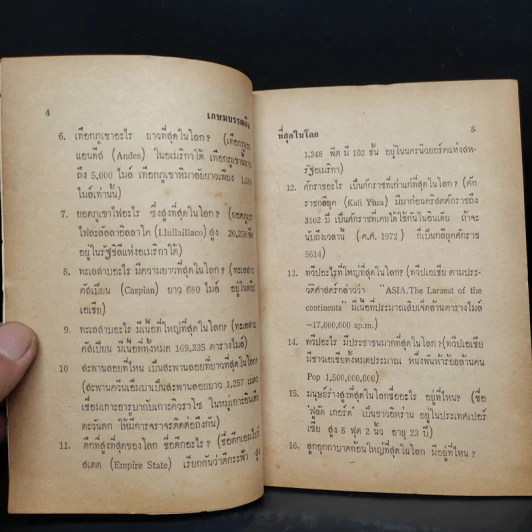 4
เกษมบรรณกิจ
6. เทือกภูเขาอะไร ยาวที่สุดในโลก? (เทือกภูเขา
แอนดีส (Andes) ในอเมริกาใต้ เทือกภูเขานี้ยาว
ถึง 5,000 ไมล์ เทือกเขาหิมาลัยยาวเพียง
ไมล์เท่านั้น)
7. ยอดภูเขาไฟอะไร ซึ่งสูงที่สุดในโลก? (ยอดภูเขา
ไฟลุลลัลลาอิลลาโค (Llullaillaco) สูง 20,250 ฟิต
อยู่ในรัฐชิลีแห่งอเมริกาใต้)
8. ทะเลสาบอะไร มีความยาวที่สุดในโลก? (ทะเลสาบ
คัสเบียน (Caspian) ยาว 680 ไมล์ อยู่ในทวีป
เอเชีย)
9. ทะเลสาบอะไร มีเนื้อที่ใหญ่ที่สุดในโลก? (ทะเลสาบ
คัสเบียน มีเนื้อที่ทั้งหมด 169,335 ตารางไมล์)
10 สะพานลอยที่ไหน เป็นสะพานลอยที่ยาวที่สุดในโลก?
(สะพานควีนเอ็มมาเป็นสะพานลอยยาว 1,257
เชื่อมเกาะอารูบากับเกาะคิวราโซ ในหมู่เกาะอินเดีย
ตะวันตก ให้มีการจราจรติดต่อถึงกัน)
11. ตึกที่สูงที่สุดของโลก ชื่อตึกอะไร? (ชื่อตึกเอมไพร์
สเตต (Empire State) เรียกกันว่าตึกระฟ้า สูง
ที่สุดในโลก
5
1,248 ฟิต มี 102 ชั้น อยู่ในนครนิวยอร์คแห่งสห-
รัฐอเมริกา)
12. ศักราชอะไร เป็นศักราชที่เก่าแก่ที่สุดในโลก? (ศัก
ราชกลียุค (Kali Yuga) มีมาก่อนคริสตศักราชถึง
3102 ปี เป็นศักราชที่เคยใช้กันในอินเดีย ถ้าจะ
นับถึงเวลานี้ (ค.ศ. 1972) ก็เป็นกลียุคศักราช
5614)
13. ทวีปอะไรที่ใหญ่ที่สุดในโลก? (ทวีปเอเซีย ตามประ-
วัติศาสตร์กล่าวว่า "ASIA.The Largest of the
continents" มีเนื้อที่ประมาณสิบเจ็ดล้านตารางไมล์
–17,000,000 sp.m.)
14. ทวีปอะไร มีประชาชนมากที่สุดในโลก? (ทวีปเอเซีย
มีชาวเอเซียทั้งหมดประมาณ หนึ่งพันห้าร้อยล้านคน
Pop 1,500,000,000)
15. มนุษย์ร่างสูงที่สุดในโลกชื่ออะไร อยู่ที่ไหน? (ชื่อ
เป็นชาวอิหร่าน อยู่ในประเทศเปอร์
เซีย สูง 8 ฟุต 2 นิ้ว อายุ 23 ปี)
16. ลูกอุกกาบาตก้อนใหญ่ที่สุดในโลก มีอยู่ที่ไหน?